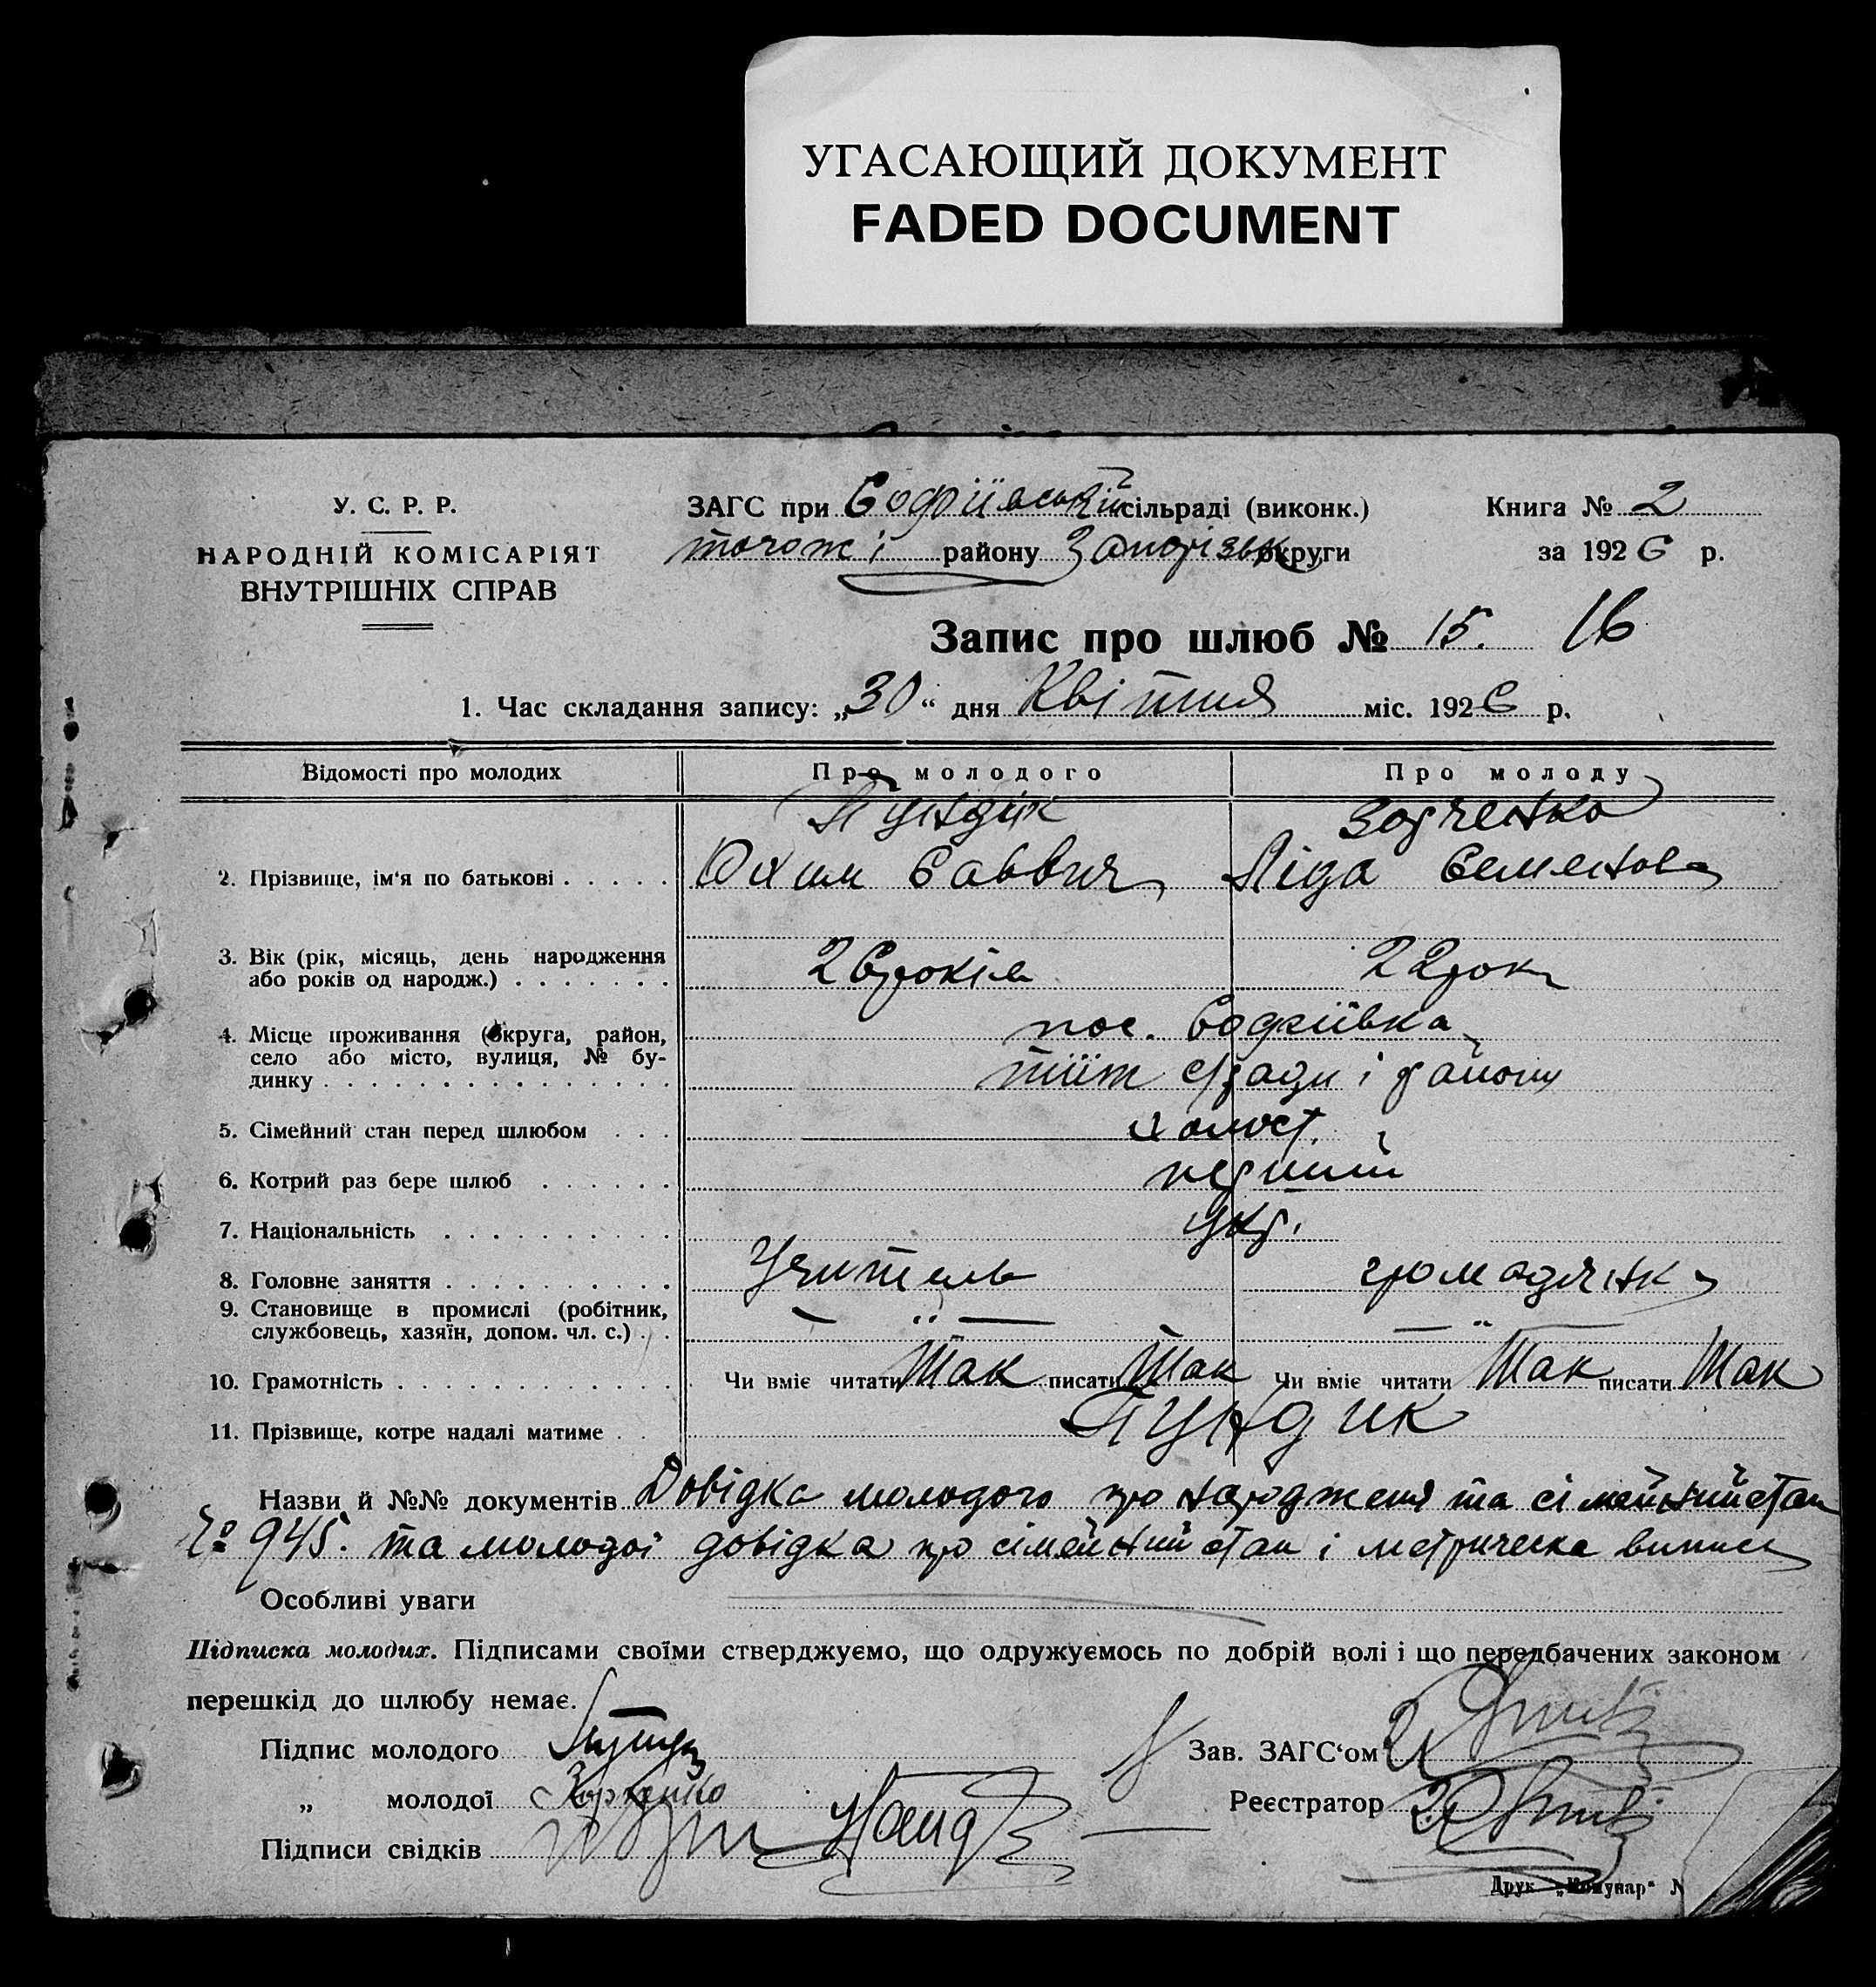 УГАСАЮЩИЙ ДОКУМЕНТ
FADED DOCUMENT
У. С. Р. Р.
НАРОДНІЙ КОМІСАРІЯТ
ВНУТРІШНІХ СПРАВ
ЗАГС при Софіївській сільраді (виконк.)
тогож і району Запорізьк округи
Книга № 2
за 1926 р.
Запис про шлюб № 15. 16
1. Час складання запису: „30“ дня Квітня міс. 1926 р.
Відомості про молодих Про молодого Про молоду
Пундик
2. Прізвище, ім'я по батькові Юхим Саввич Ліда Семенова
3. Вік (рік, місяць, день народження
або років од народж.) 26 років 22 рок
4. Місце проживання (округа, район, пос. Софіівка
село або місто, вулиця, № бу-
динку тіїж с/ради і району
5. Сімейний стан перед шлюбом холост.
6. Котрий раз бере шлюб перший
7. Національність укр.
8. Головне заняття Учитель громадянк
9. Становище в промислі (робітник,
службовець, хазяїн, допом. чл. с.) — „ — — „ —
10. Грамотність Чи вміє читати Так писати Так Чи вміє читати Так писати Так
11. Прізвище, котре надалі матиме Пундик
Назви й №№ документів Довідка молодого про народженя та сімейний стан
№ 945. та молодоі довідка про сімейний стан і метрическа випись
Особливі уваги
Підписка молодих. Підписами своїми стверджуємо, що одружуємось по добрій волі і що передбачених законом
перешкід до шлюбу немає.
Підпис молодого
„ молодої
Підписи свідків
Зав. ЗАГС‘ом
Реєстратор
Друк. „Комунар“ №